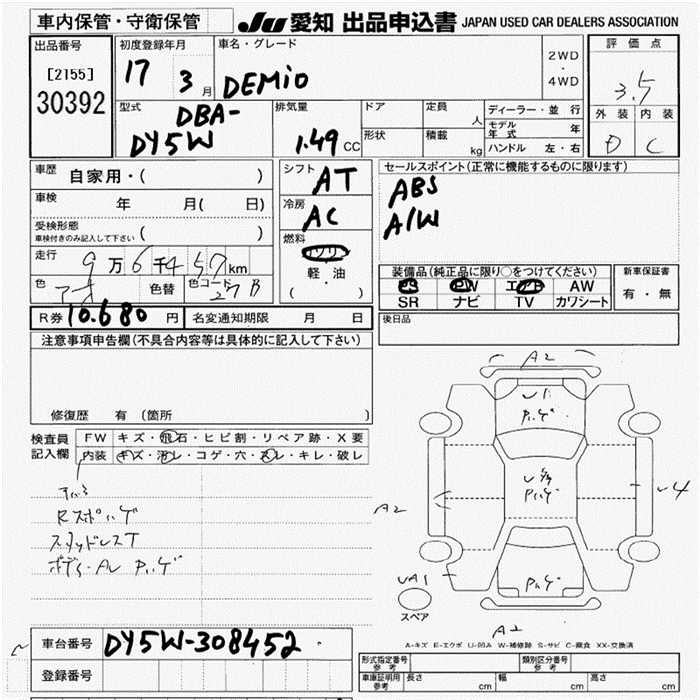 車内保管・守衛保管
JU 愛知 出品申込書 JAPAN USED CAR DEALERS ASSOCIATION
出品番号
[2155]
30392
初度登録年月
17 3 月
車名・グレード
DEMIO
2WD
・
4WD
評価点
3.5
外装 内装
D C
型式
DBA-
DY5W
排気量
1.49 CC
ドア
定員 人
形状
積載 kg
ディーラー・並行
モデル年式 年
ハンドル 左・右
車歴 自家用・( )
車検 年 月( 日)
受検形態
車検付きのみ記入して下さい ( )
走行 9万6千457km
色 アオ 色替 色コード 27B
R券 10.680 円 名変通知期限 月 日
シフト AT
冷房 AC
燃料
ガソリン
軽・油
( )
セールスポイント(正常に機能するものに限ります)
ABS
A/W
装備品(純正品に限り○をつけてください)
PS PW エアB AW
SR ナビ TV カワシート
新車保証書
有・無
後日品
注意事項申告欄(不具合内容等は具体的に記入して下さい)
修復歴 有(箇所 )
検査員記入欄
FW キズ・飛石・ヒビ割・リペア跡・X要
内装 キズ・汚レ・コゲ・穴・スレ・キレ・破レ
Rスポハゲ
スタッドレスT
ボディ・AL Pハゲ
A2
U1
Pハゲ
Pハゲ
A2
U4
Pハゲ
UA1
スペア
A2
A-キズ E-エクボ U-凹み W-補修跡 S-サビ C-腐食 XX-交換済
車台番号 DY5W-308452
登録番号
形式指定番号参考
類別区分番号参考
車庫証明用参考 長さ cm 幅 cm 高さ cm